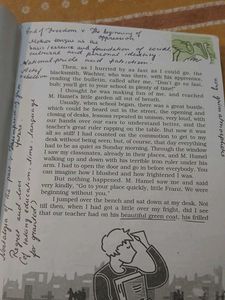 End of freedom & the beginning of
oppression
Mother tongue as the
basic essence and foundation of
cultural and personal identity
National pride and patriotism
Then, as I hurried by as fast as I could go, the
blacksmith, Wachter, who was there, with his apprentice,
reading the bulletin, called after me, "Don't go so fast,
bub; you'll get to your school in plenty of time!"
I thought he was making fun of me, and reached
M. Hamel's little garden all out of breath.
Usually, when school began, there was a great bustle,
which could be heard out in the street, the opening and
closing of desks, lessons repeated in unison, very loud, with
our hands over our ears to understand better, and the
teacher's great ruler rapping on the table. But now it was
all so still! I had counted on the commotion to get to my
desk without being seen; but, of course, that day everything
had to be as quiet as Sunday morning. Through the window
I saw my classmates, already in their places, and M. Hamel
walking up and down with his terrible iron ruler under his
arm. I had to open the door and go in before everybody. You
can imagine how I blushed and how frightened I was.
But nothing happened. M. Hamel saw me and said
very kindly, "Go to your place quickly, little Franz. We were
beginning without you."
I jumped over the bench and sat down at my desk. Not
till then, when I had got a little over my fright, did I see
that our teacher had on his beautiful green coat, his frilled